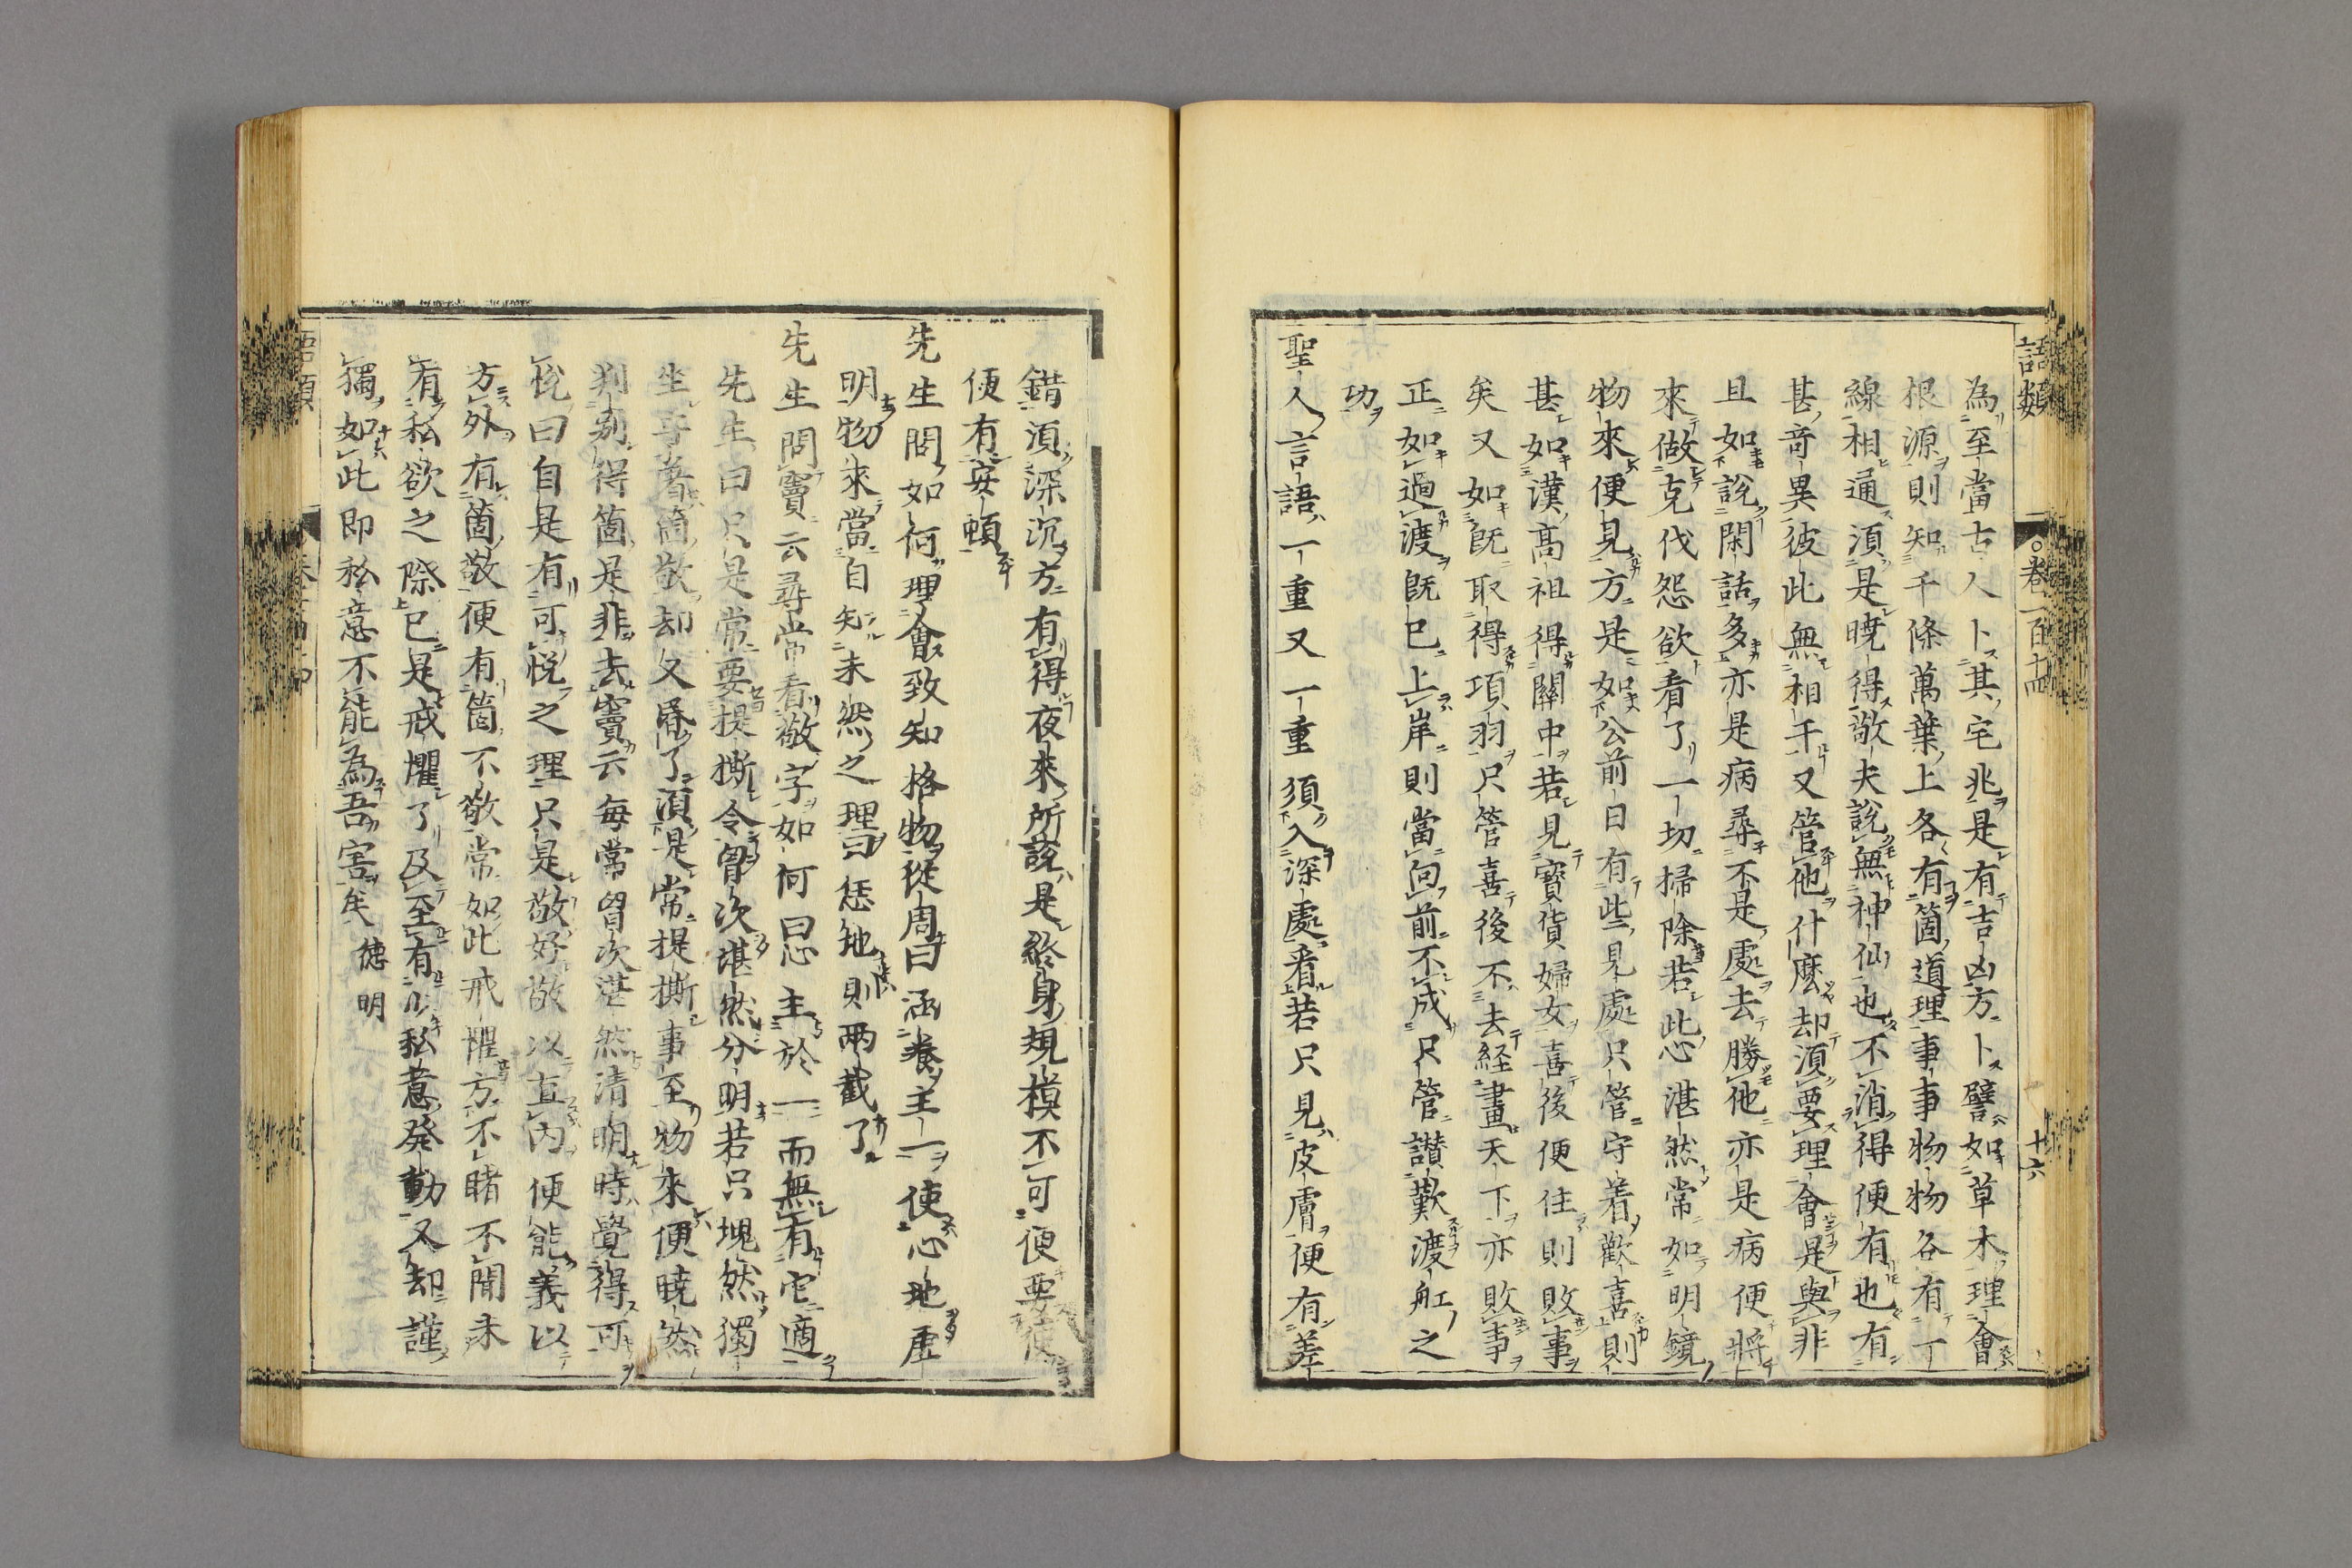 語類
卷一百十四
十六
為至當古人卜其宅兆是有吉凶方卜譬如草木理會
根源則知千條萬葉上各有箇道理事事物物各有一
線相通須是曉得敬夫說無神仙也不消得便有也有
甚奇異彼此無相干又管他什麼却須要理會是與非
且如說閑話多亦是病尋不是處去勝他亦是病便將
來做克伐怨欲看了一切掃除若此心湛然常如明鏡
物來便見方是如公前日有些見處只管守着歡喜則
甚如漢高祖得關中若見寳貨婦女喜後便住則敗事
矣又如既取得項羽只管喜後不去経畫天下亦敗事
正如過渡既已上岸則當向前不成只管讃歎渡舡之
功
聖人言語一重又一重須入深處看若只見皮膚便有差
錯須深沉方有得夜來所說是終身規模不可便要使
便有安頓
先生問如何理會致知格物從周曰涵養主一使心地虛
明物來當自知未然之理曰恁地則兩截了
先生問竇云尋常看敬字如何曰心主於一而無有它適
先生曰只是常要提撕令胷次湛然分明若只塊然獨
坐守着箇敬却又昏了須是常提撕事至物來便曉然
判别得箇是非去竇云每常胷次湛然清明時覺得可
悅曰自是有可悅之理只是敬好敬以直内便能義以
方外有箇敬便有箇不敬常如此戒懼方不睹不聞未
有私欲之際已是戒懼了及至有少私意發動又却謹
獨如此即私意不能為吾害矣 德明
語類